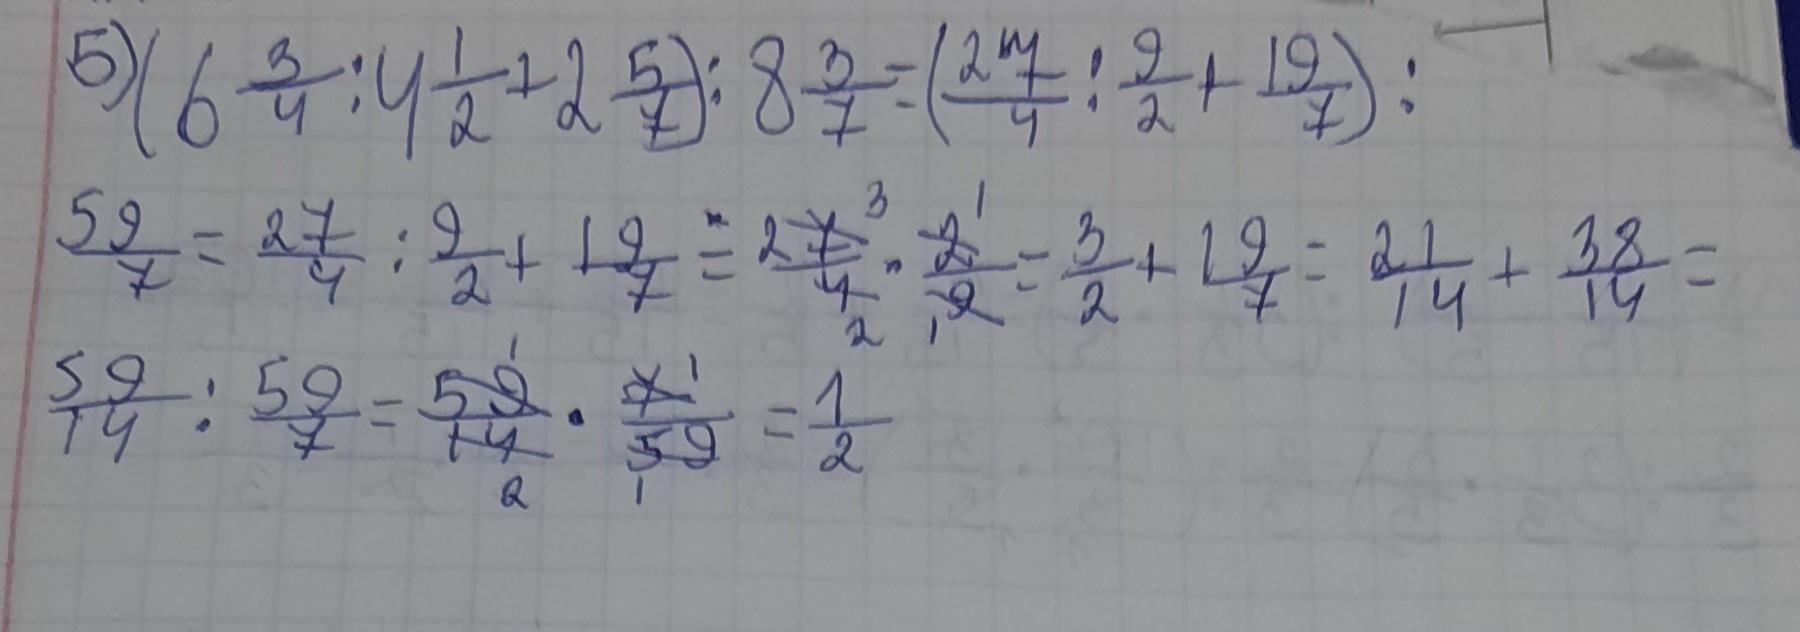 5) (6 3/4 : 4 1/2 + 2 5/7) : 8 3/7 = (27/4 : 9/2 + 19/7) :
59/7 = 27/4 : 9/2 + 19/7 = 27 3/4 2 · 2 1/9 1 = 3/2 + 19/7 = 21/14 + 38/14 =
59/14 : 59/7 = 59 1/14 2 · 7 1/59 1 = 1/2